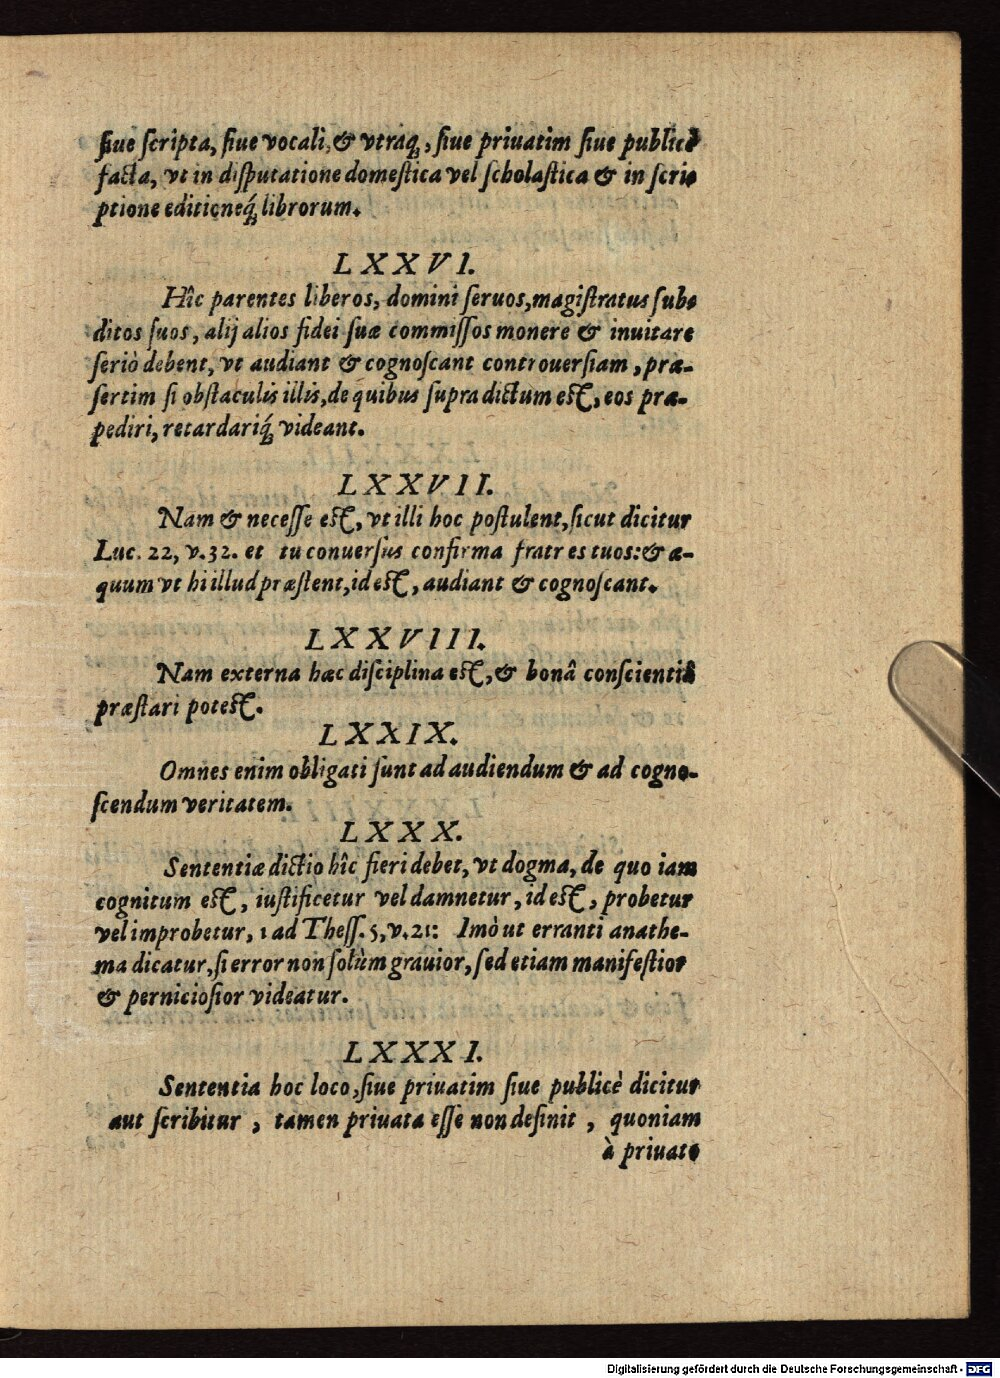 ſiue ſcripta, ſiue vocali, & vtraq́;, ſiue priuatim ſiue publicè
facta, vt in diſputatione domeſtica vel ſcholaſtica & in ſcri-
ptione editioneq́; librorum.
LXXVI.
Hîc parentes liberos, domini ſeruos, magiſtratus ſub-
ditos ſuos, alij alios fidei ſuæ commiſſos monere & inuitare
ſeriò debent, vt audiant & cognoſcant controuerſiam, præ-
ſertim ſi obſtaculis illis, de quibus ſupra dictum eſt, eos præ-
pediri, retardariq́; videant.
LXXVII.
Nam & neceſſe eſt, vt illi hoc poſtulent, ſicut dicitur
Luc. 22, v. 32. et tu conuerſus confirma fratres tuos: & æ-
quum vt hi illud præſtent, id eſt, audiant & cognoſcant.
LXXVIII.
Nam externa hæc diſciplina eſt, & bonâ conſcientiâ
præſtari poteſt.
LXXIX.
Omnes enim obligati ſunt ad audiendum & ad cogno-
ſcendum veritatem.
LXXX.
Sententiæ dictio hîc fieri debet, vt dogma, de quo iam
cognitum eſt, iuſtificetur vel damnetur, id eſt, probetur
vel improbetur, 1 ad Theſſ. 5, v. 21: Imò ut erranti anathe-
ma dicatur, ſi error non ſolùm grauior, ſed etiam manifeſtior
& pernicioſior videatur.
LXXXI.
Sententia hoc loco, ſiue priuatim ſiue publicè dicitur
aut ſcribitur, tamen priuata eſſe non deſinit, quoniam
à priuato
Digitalisierung gefördert durch die Deutsche Forschungsgemeinschaft - DFG